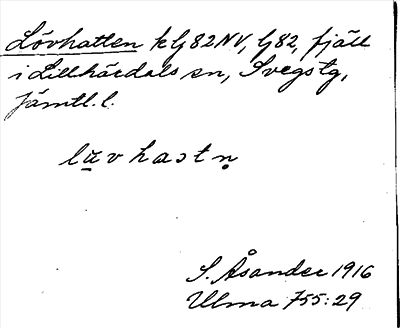 Lövhatten kbl 82NV, bl 82, fjäll
i Lillhärdals sn, Svegs tg,
Jämtl. l.
S. Åsander 1916
Ulma 755:29